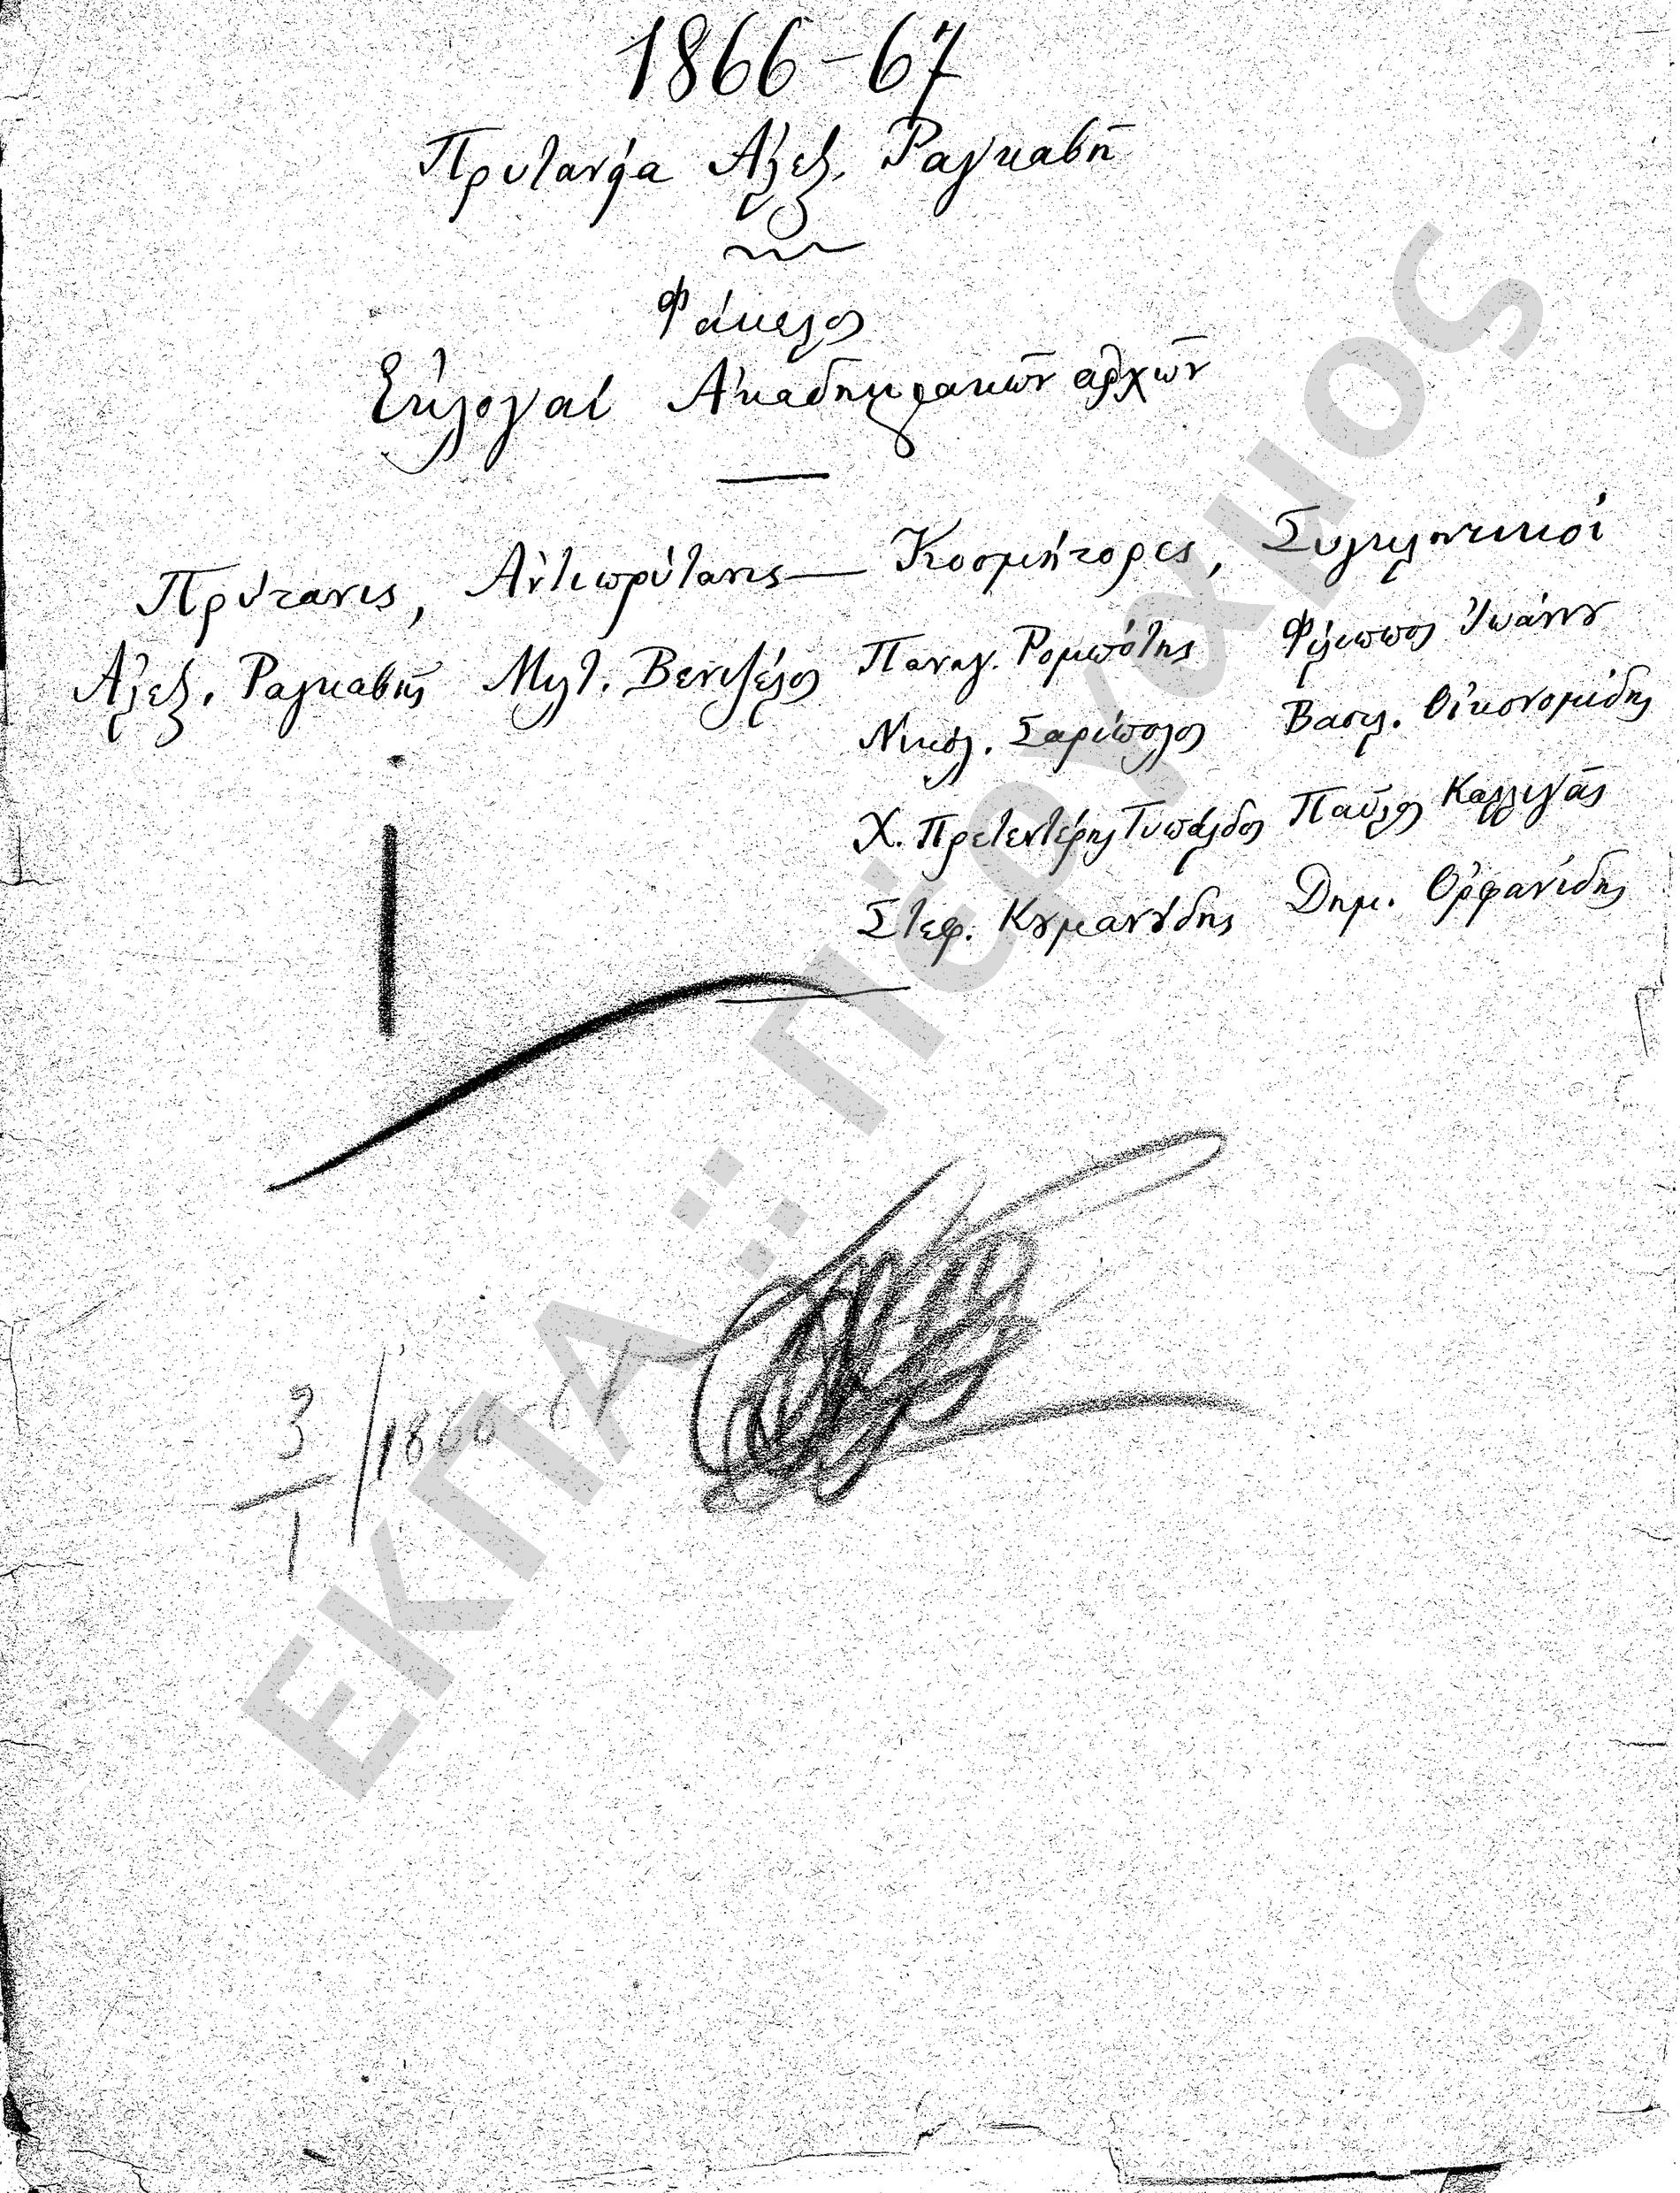 1866-67
Πρυτανεία Ἀλεξ. Ραγκαβῆ
Φάκελος
Ἐκλογαί Ἀκαδημαϊκῶν ἀρχῶν
Πρύτανις, Ἀντιπρύτανις — Κοσμήτορες, Συγκλητικοί
Ἀλεξ. Ραγκαβῆς Μιλτ. Βενιζέλος Παναγ. Ρομπότης Φίλιππος Ἰωάννου
Νικόλ. Σαρίπολος Βασιλ. Οἰκονομίδης
Χ. Πρετεντέρης Τυπάλδος Παῦλος Καλλιγᾶς
Στεφ. Κουμανούδης Δημ. Ὀρφανίδης
3/1 /1866-67
ΕΚΠΑ :: Πέργαμος